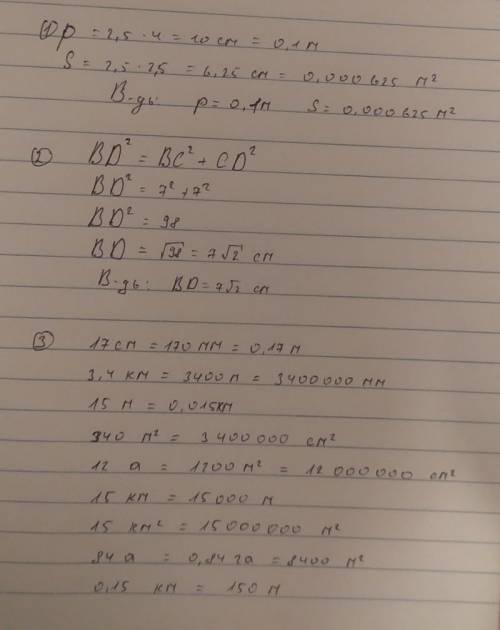 ① p = 2,5 · 4 = 10 см = 0,1 м
S = 2,5 · 2,5 = 6,25 см = 0,000625 м²
В-дь: p = 0,1м S = 0,000625 м²
② BD² = BC² + CD²
BD² = 7² + 7²
BD² = 98
BD = √98 = 7√2 см
В-дь: BD = 7√2 см
③ 17 см = 170 мм = 0,17 м
3,4 км = 3400 м = 3400000 мм
15 м = 0,015км
340 м² = 3400000 см²
12 а = 1200 м² = 12 000 000 см²
15 км = 15000 м
15 км² = 15000000 м²
84 а = 0,84 га = 8400 м²
0,15 км = 150 м